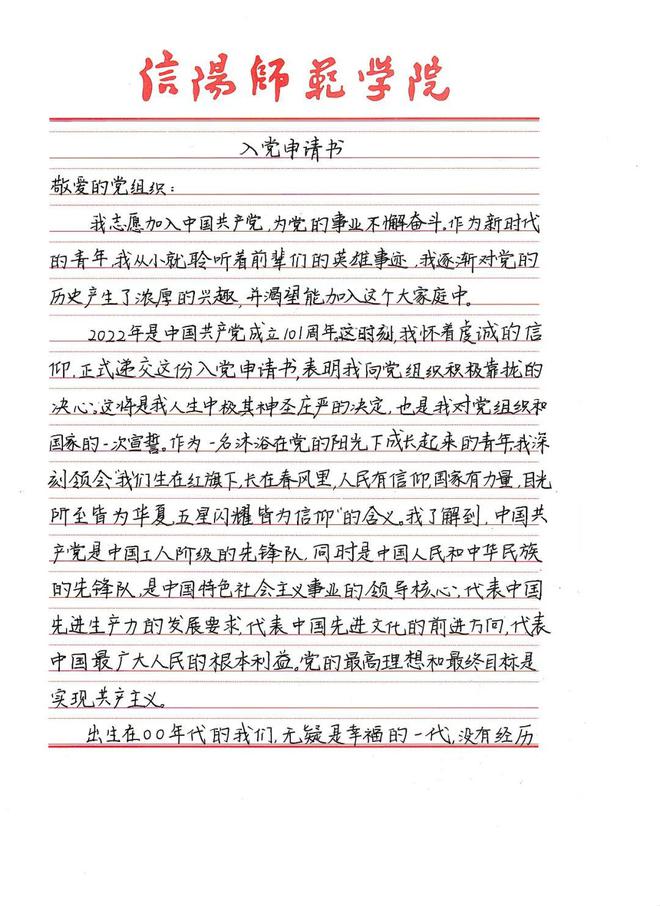 信陽師範学院
入党申请书
敬爱的党组织：
我志愿加入中国共产党,为党的事业不懈奋斗。作为新时代
的青年,我从小就聆听着前辈们的英雄事迹,我逐渐对党的
历史产生了浓厚的兴趣,并渴望能加入这个大家庭中。
2022年是中国共产党成立101周年。这时刻,我怀着虔诚的信
仰,正式递交这份入党申请书,表明我向党组织积极靠拢的
决心。这将是我人生中极其神圣庄严的决定，也是我对党组织和
国家的一次宣誓。作为一名沐浴在党的阳光下成长起来的青年,我深
刻领会“我们生在红旗下,长在春风里,人民有信仰,国家有力量,目光
所至皆为华夏,五星闪耀皆为信仰”的含义。我了解到,中国共
产党是中国工人阶级的先锋队,同时是中国人民和中华民族
的先锋队,是中国特色社会主义事业的领导核心,代表中国
先进生产力的发展要求,代表中国先进文化的前进方向,代表
中国最广大人民的根本利益。党的最高理想和最终目标是
实现共产主义。
出生在00年代的我们,无疑是幸福的一代,没有经历